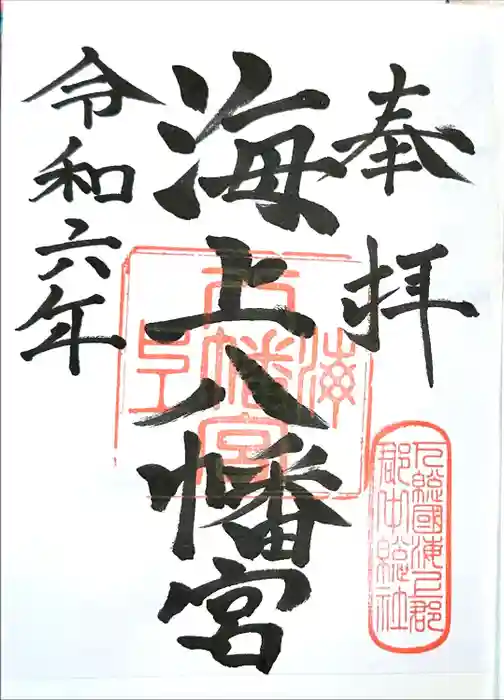 奉拝
海上八幡宮
令和六年
海八幡宮上
下総國海上郡
郡中総社